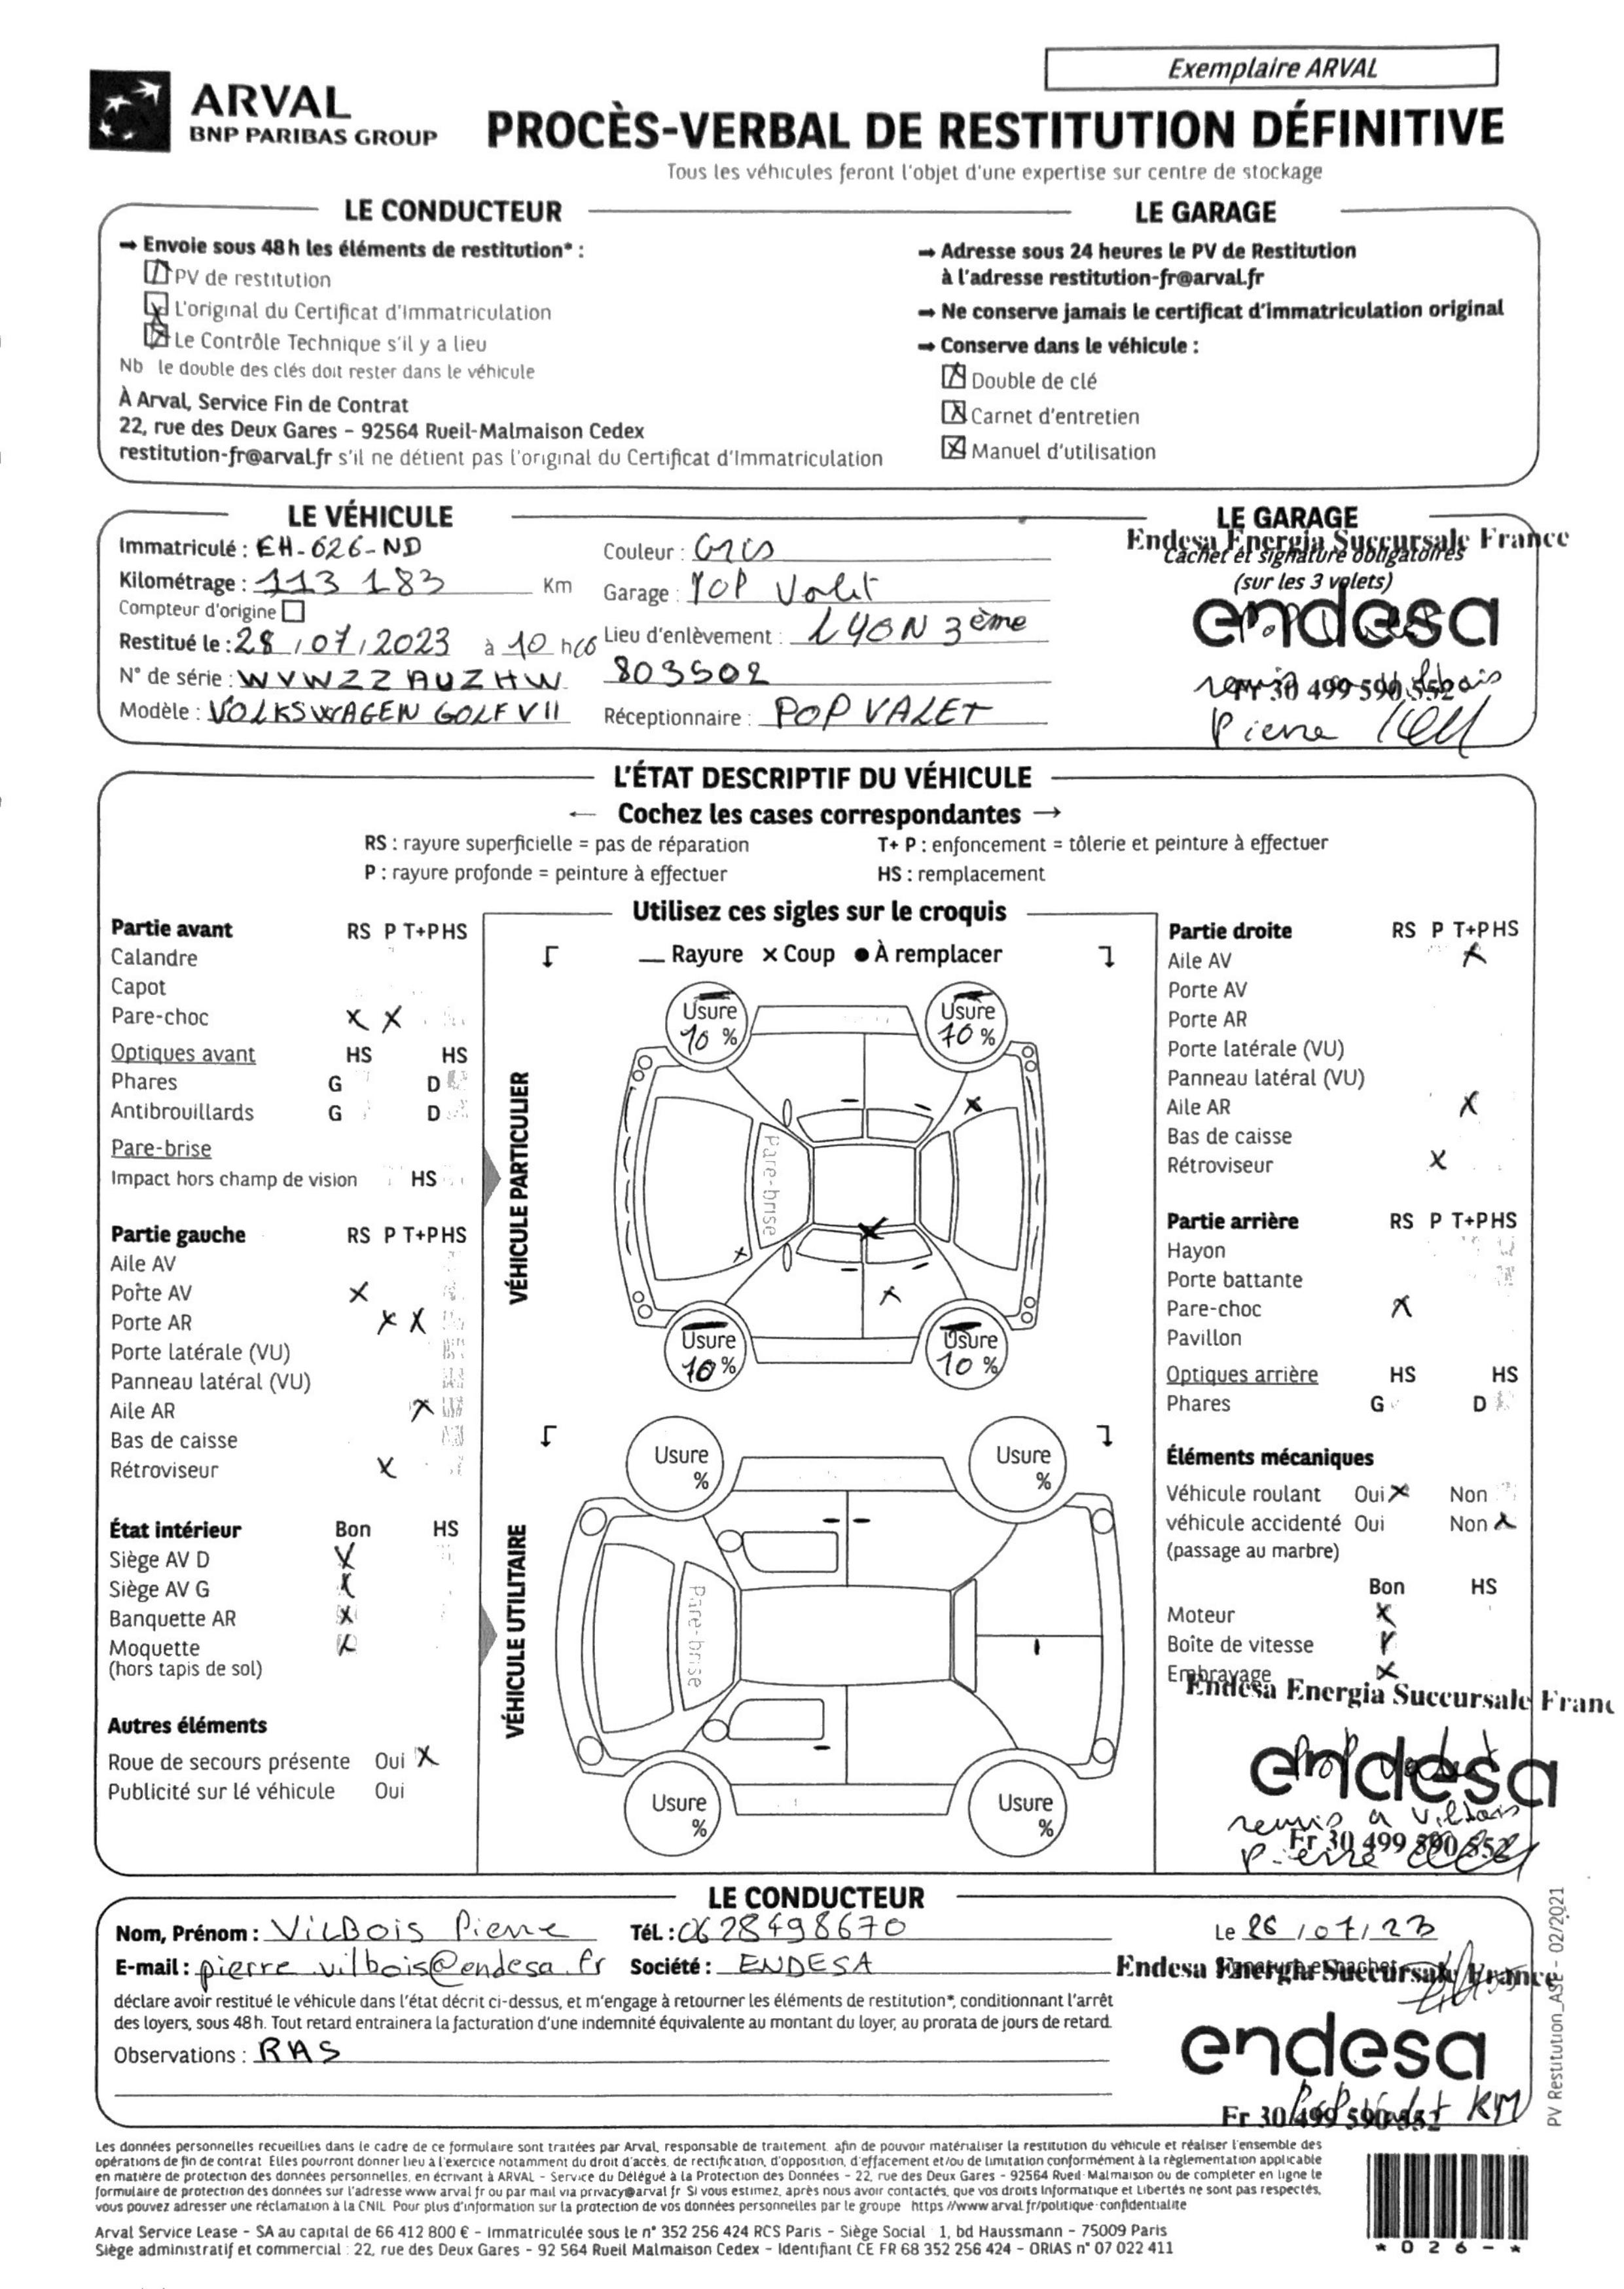 Exemplaire ARVAL
ARVAL
BNP PARIBAS GROUP
PROCÈS-VERBAL DE RESTITUTION DÉFINITIVE
Tous les véhicules feront l'objet d'une expertise sur centre de stockage
LE CONDUCTEUR
→ Envoie sous 48 h les éléments de restitution* :
PV de restitution
L'original du Certificat d'Immatriculation
Le Contrôle Technique s'il y a lieu
Nb le double des clés doit rester dans le véhicule
À Arval, Service Fin de Contrat
22, rue des Deux Gares – 92564 Rueil-Malmaison Cedex
restitution-fr@arval.fr s'il ne détient pas l'original du Certificat d'Immatriculation
LE GARAGE
→ Adresse sous 24 heures le PV de Restitution
à l'adresse restitution-fr@arval.fr
→ Ne conserve jamais le certificat d'immatriculation original
→ Conserve dans le véhicule :
Double de clé
Carnet d'entretien
Manuel d'utilisation
LE VÉHICULE
Immatriculé : EH-626-ND
Kilométrage : 113 183 Km
Compteur d'origine
Restitué le : 28/07/2023 à 10 h
N° de série : WVWZZZAUZHW 803502
Modèle : VOLKSWAGEN GOLF VII
Couleur : Gris
Garage : POP Valet
Lieu d'enlèvement : LYON 3ème
Réceptionnaire : POP VALET
LE GARAGE
Endesa Energia Succursale France
Cachet et signature obligatoires
(sur les 3 volets)
endesa
Fr 30 499 590 552
Pierre
L'ÉTAT DESCRIPTIF DU VÉHICULE
← Cochez les cases correspondantes →
RS : rayure superficielle = pas de réparation
T+ P : enfoncement = tôlerie et peinture à effectuer
P : rayure profonde = peinture à effectuer
HS : remplacement
Utilisez ces sigles sur le croquis
— Rayure × Coup ● À remplacer
Partie avant RS P T+P HS
Calandre
Capot
Pare-choc X X
Optiques avant HS HS
Phares G D
Antibrouillards G D
Pare-brise
Impact hors champ de vision HS
Partie gauche RS P T+P HS
Aile AV
Porte AV X
Porte AR X X
Porte latérale (VU)
Panneau latéral (VU)
Aile AR X
Bas de caisse
Rétroviseur X
État intérieur Bon HS
Siège AV D X
Siège AV G X
Banquette AR X
Moquette X
(hors tapis de sol)
Autres éléments
Roue de secours présente Oui X
Publicité sur lé véhicule Oui
VÉHICULE PARTICULIER
Usure
10 %
Usure
10 %
Pare-brise
Usure
10 %
Usure
10 %
VÉHICULE UTILITAIRE
Usure
%
Usure
%
Pare-brise
Usure
%
Usure
%
Partie droite RS P T+P HS
Aile AV X
Porte AV
Porte AR
Porte latérale (VU)
Panneau latéral (VU)
Aile AR X
Bas de caisse
Rétroviseur X
Partie arrière RS P T+P HS
Hayon
Porte battante
Pare-choc X
Pavillon
Optiques arrière HS HS
Phares G D
Éléments mécaniques
Véhicule roulant Oui X Non
véhicule accidenté Oui Non X
(passage au marbre)
Bon HS
Moteur X
Boîte de vitesse X
Embrayage X
Endesa Energia Succursale Franc
endesa
remis a Vilbois
Fr 30 499 590 552
Pierre
LE CONDUCTEUR
Nom, Prénom : VILBOIS Pierre
Tél. : 0628498670
E-mail : pierre.vilbois@endesa.fr
Société : ENDESA
déclare avoir restitué le véhicule dans l'état décrit ci-dessus, et m'engage à retourner les éléments de restitution*, conditionnant l'arrêt
des loyers, sous 48 h. Tout retard entrainera la facturation d'une indemnité équivalente au montant du loyer, au prorata de jours de retard.
Observations : RAS
Le 26/07/23
Signature et cachet
Endesa Energia Succursale France
endesa
Fr 30 499 590 552
PV Restitution_ASE - 02/2021
Les données personnelles recueillies dans le cadre de ce formulaire sont traitées par Arval, responsable de traitement, afin de pouvoir matérialiser la restitution du véhicule et réaliser l'ensemble des
opérations de fin de contrat Elles pourront donner lieu à l'exercice notamment du droit d'accès, de rectification, d'opposition, d'effacement et/ou de limitation conformément à la règlementation applicable
en matière de protection des données personnelles, en écrivant à ARVAL – Service du Délégué à la Protection des Données – 22, rue des Deux Gares – 92564 Rueil Malmaison ou de completer en ligne le
formulaire de protection des données sur l'adresse www arval fr ou par mail via privacy@arval fr Si vous estimez, après nous avoir contactés, que vos droits Informatique et Libertés ne sont pas respectés,
vous pouvez adresser une réclamation à la CNIL Pour plus d'information sur la protection de vos données personnelles par le groupe https //www arval fr/politique-confidentialite
Arval Service Lease – SA au capital de 66 412 800 € – Immatriculée sous le n° 352 256 424 RCS Paris – Siège Social 1, bd Haussmann – 75009 Paris
Siège administratif et commercial : 22, rue des Deux Gares – 92 564 Rueil Malmaison Cedex – Identifiant CE FR 68 352 256 424 – ORIAS n° 07 022 411
* 0 2 6 - *